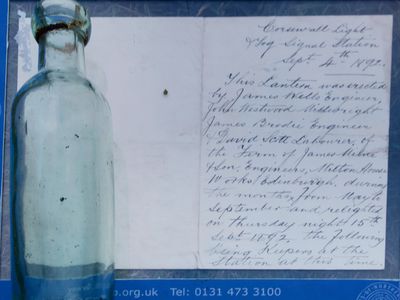 Corsewall Light
& Fog Signal Station
Sept 4th 1892.
This Lantern was erected
by James Wells Engineer,
John Westwood Millwright
James Brodie Engineer
& David Scott Labourer, of
the Firm of James Milne
& Son, Engineers, Milton House
Works, Edinburgh, during
the months from May to
September and relighted
on thursday night 15th
Sept 1892. the following
being Keepers at the
Station at this time
.org.uk Tel: 0131 473 3100